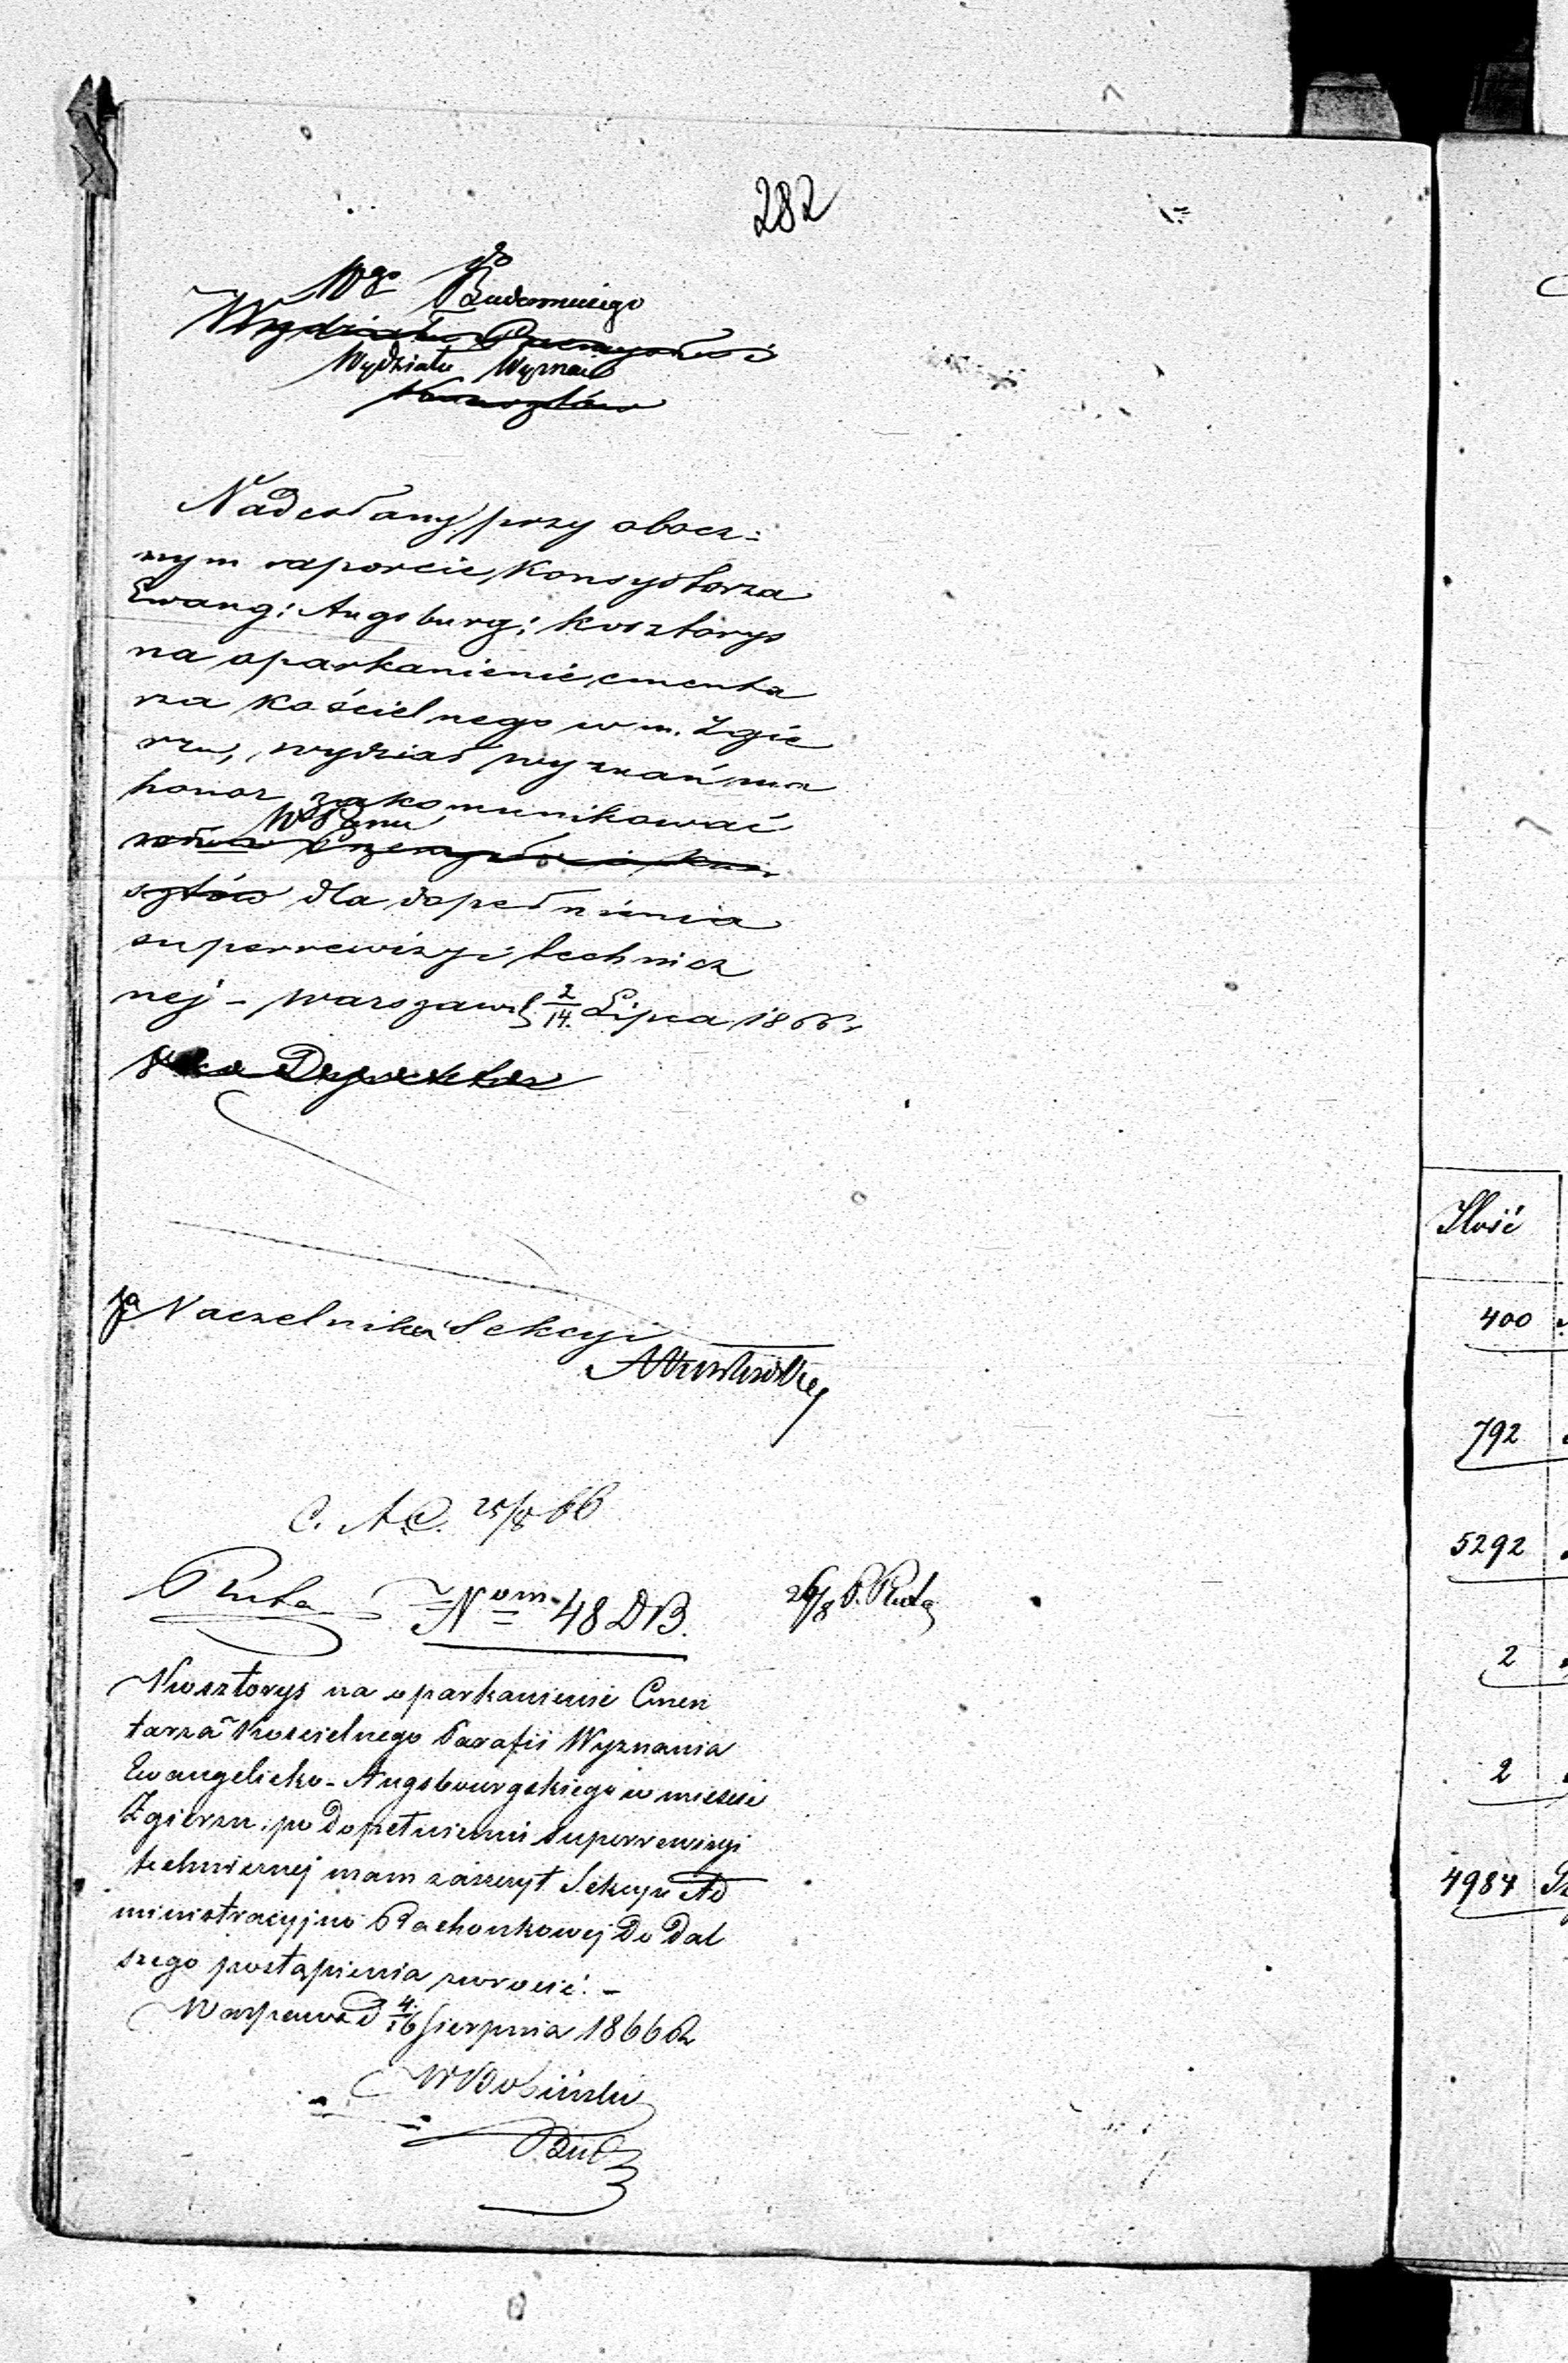 282
do
Wgo Budowniczego
Wydziału Przemysłu i
Wydziału Wyznań
Kunsztów
Nadesłany przy obocz=
nym raporcie Konsystorza
Ewang: Augsburg: kosztorys
na oparkanienie cmenta
rza kościelnego w m. Zgie
rzu, wydział wyznań ma
honor zakomunikować
WPanu
Przemysłu i kun
sztów dla dopełnienia
superrewizyi technicz
nej – Warszawa 2/14. Lipca 1866 r
Dyrektor
za Naczelnika Sekcyi
C. A. C. 25/8 66
Nom 48 DB.
26/8
Kosztorys na oparkanienie Cmen
tarza Kościelnego Parafii Wyznania
Ewangelicko-Augsbourgskiego w mieście
Zgierzu po dopełnieniu superrewizyi
technicznej mam zaszczyt Sekcyi Ad
ministracyjno Rachunkowej do dal
szego postąpienia zwrócić. –
Warszawa d 4/16 Sierpnia 1866 R
Ilość
400
792
5292
2
2
4984